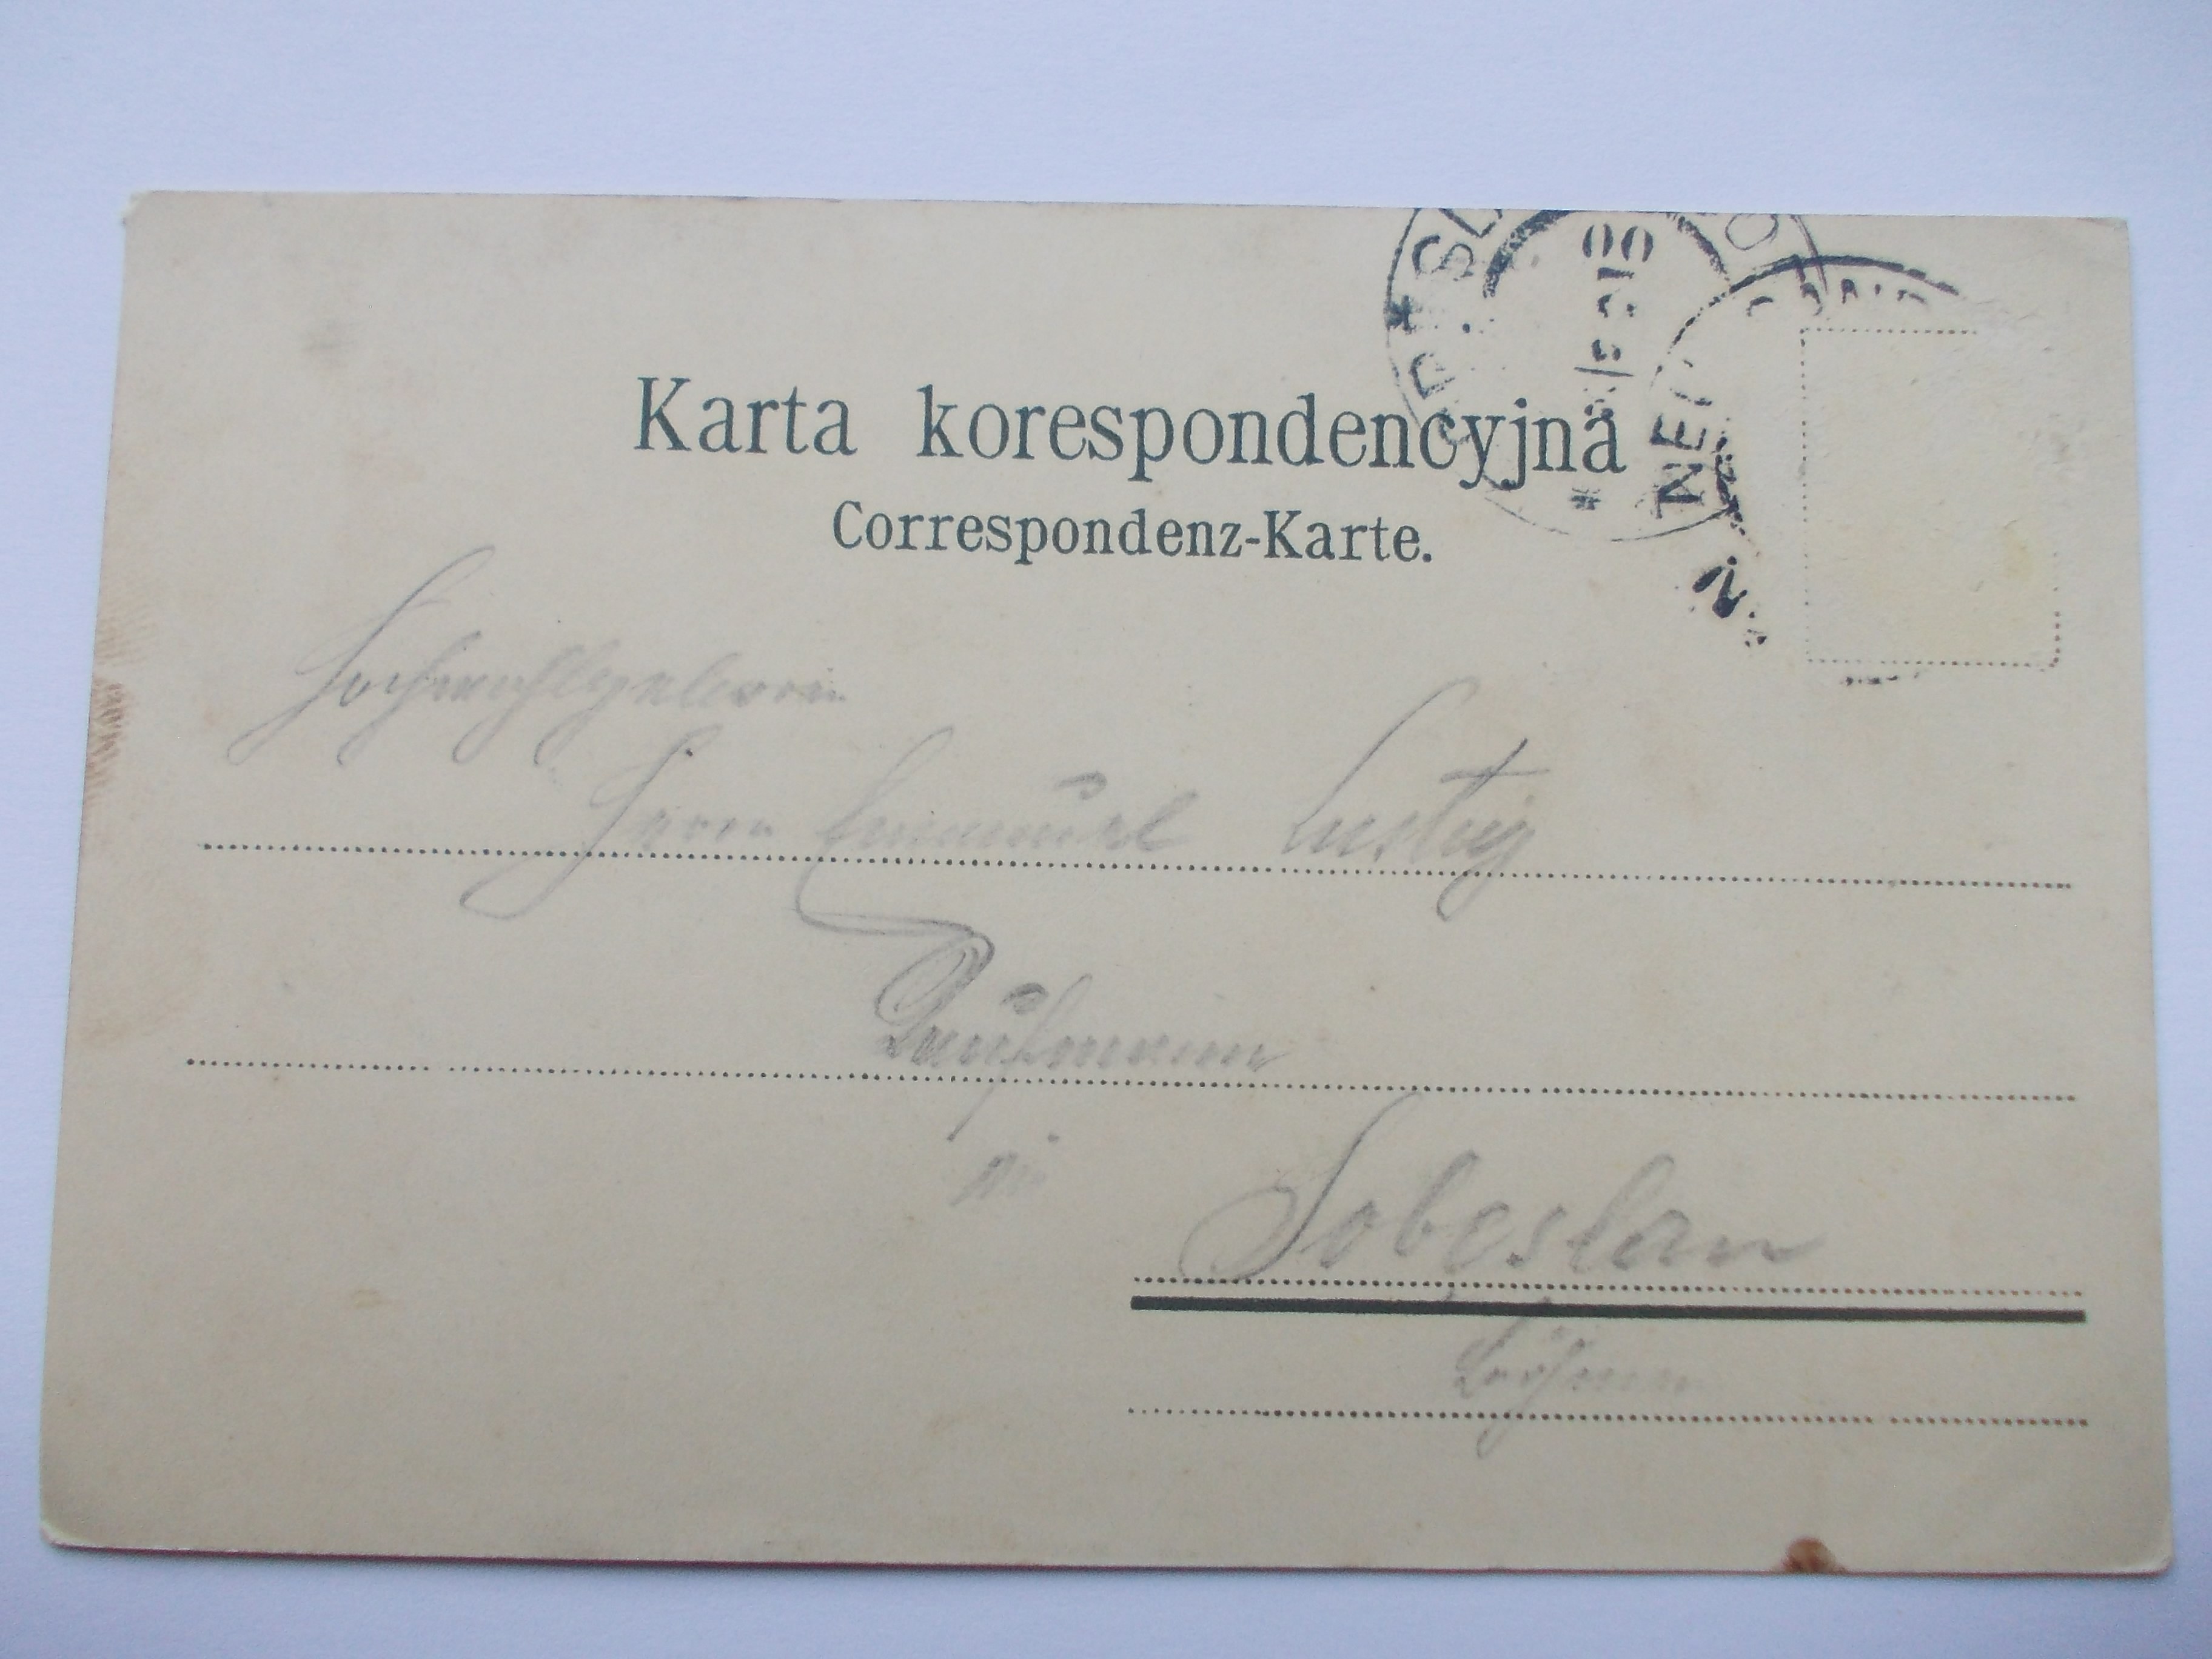 Karta korespondencyjna
Correspondenz-Karte.
Hochwohlgeboren
Herrn Emanuel Lustig
Kaufmann
in
Sobeslau
Böhmen